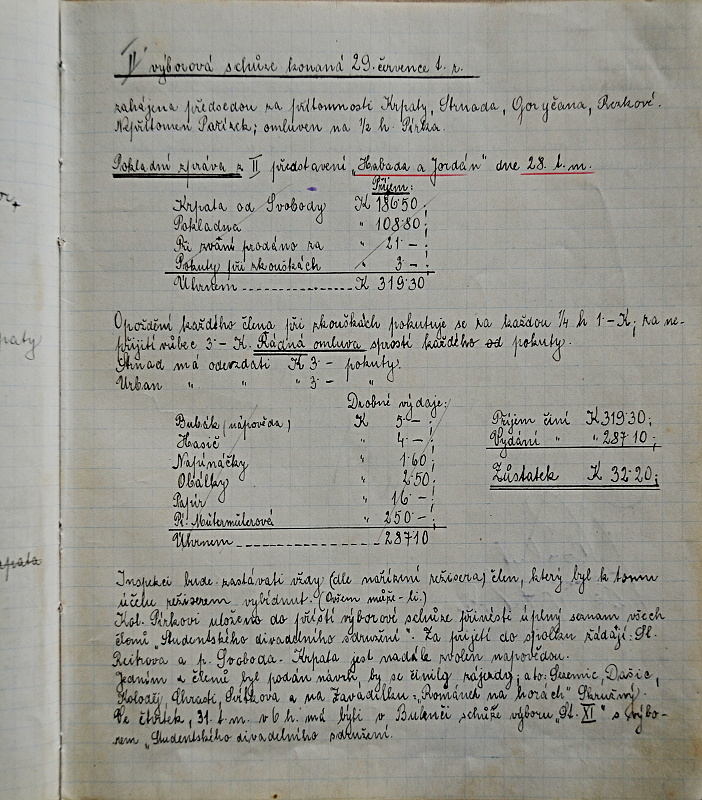 II výborová schůze konaná 29. července t. r.
zahájena předsedou za přítomnosti Krpaty, Strnada, Goryčana, Rezkové.
Nepřítomen Pařízek; omluven na 1/2 h. Pirka.
Pokladní zpráva z II představení „Habada a Jordán" dne 28. t. m.
Příjem:
Krpata od Svobody K 186·50;
Pokladna " 108·80;
Při zvaní prodáno za " 21·—;
Pokuty při zkouškách " 3·—;
Úhrnem K 319·30
Opoždění každého člena při zkouškách pokutuje se za každou 1/4 h 1·—K; za ne-
přijití vůbec 3·—K. Řádná omluva sprostí každého od pokuty.
Strnad má odevzdati K 3·— pokuty.
Urban " " " 3·— "
Drobné výdaje:
Bubák (nápověda) K 5·—;
Hasič " 4·—;
Napínáčky " 1·60;
Obálky " 2·50;
Papír " 16·—;
Pí. Mütermülerová " 250·—;
Úhrnem 287·10
Příjem činí K 319·30;
Vydání " " 287·10;
Zůstatek K 32·20;
Inspekci bude zastávati vždy (dle nařízení režisera) člen, který byl k tomu
účelu režiserem vybídnut. (Ovšem může-li.)
Kol. Pirkovi uloženo do příští výborové schůze přinésti úplný seznam všech
členů „Studentského divadelního sdružení". Za přijetí do spolku žádají: Sl.
Reitrova a p. Svoboda. Krpata jest nadále zvolen napovědou.
Jedním z členů byl podán návrh, by se činily zájezdy; a to: Sezemic, Dašic,
Holoděj, Chrasti, Svítkova a na Zavadilku: „Románek na horách" Skružný.
Ve čtvrtek, 31. t. m. v 6 h. má býti v Bukanči schůze výboru „St. XI" s výbo-
rem „Studentského divadelního sdružení.